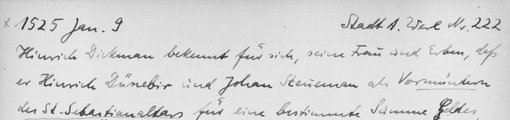 x 1525 Jan. 9 Stadt A. Werl Nr. 222
Hinrich Dickman bekennt für sich, seine Frau und Erben, daß
er Hinrich Dünebir und Johan Steueman als Vormündern
des St. Sebastianaltars für eine bestimmte Summe Geldes